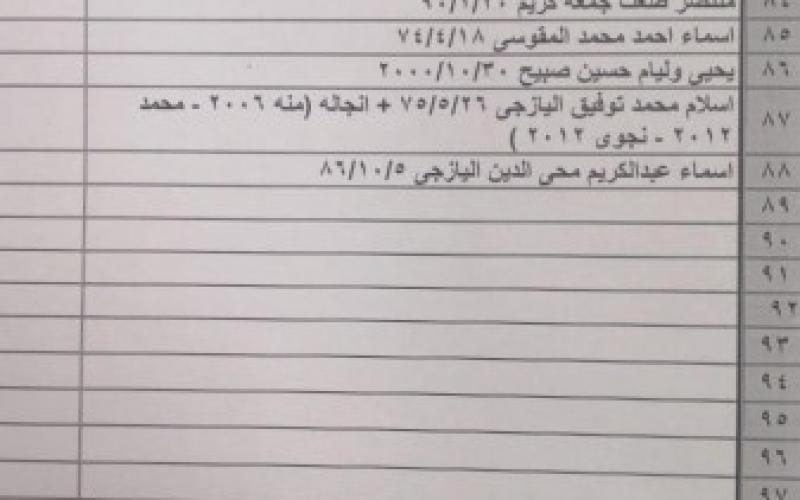 ٨٤ منتصر طلعت جمعه كريم ٩٠/١/٢٠
٨٥ اسماء احمد محمد المقوسى ٧٤/٤/١٨
٨٦ يحيى وليام حسين صبيح ٢٠٠٠/١٠/٣٠
٨٧ اسلام محمد توفيق اليازجى ٧٥/٥/٢٦ + انجاله (منه ٢٠٠٦ - محمد
٢٠١٢ - نجوى ٢٠١٢ )
٨٨ اسماء عبدالكريم محى الدين اليازجى ٨٦/١٠/٥
٨٩
٩٠
٩١
٩٢
٩٣
٩٤
٩٥
٩٦
٩٧